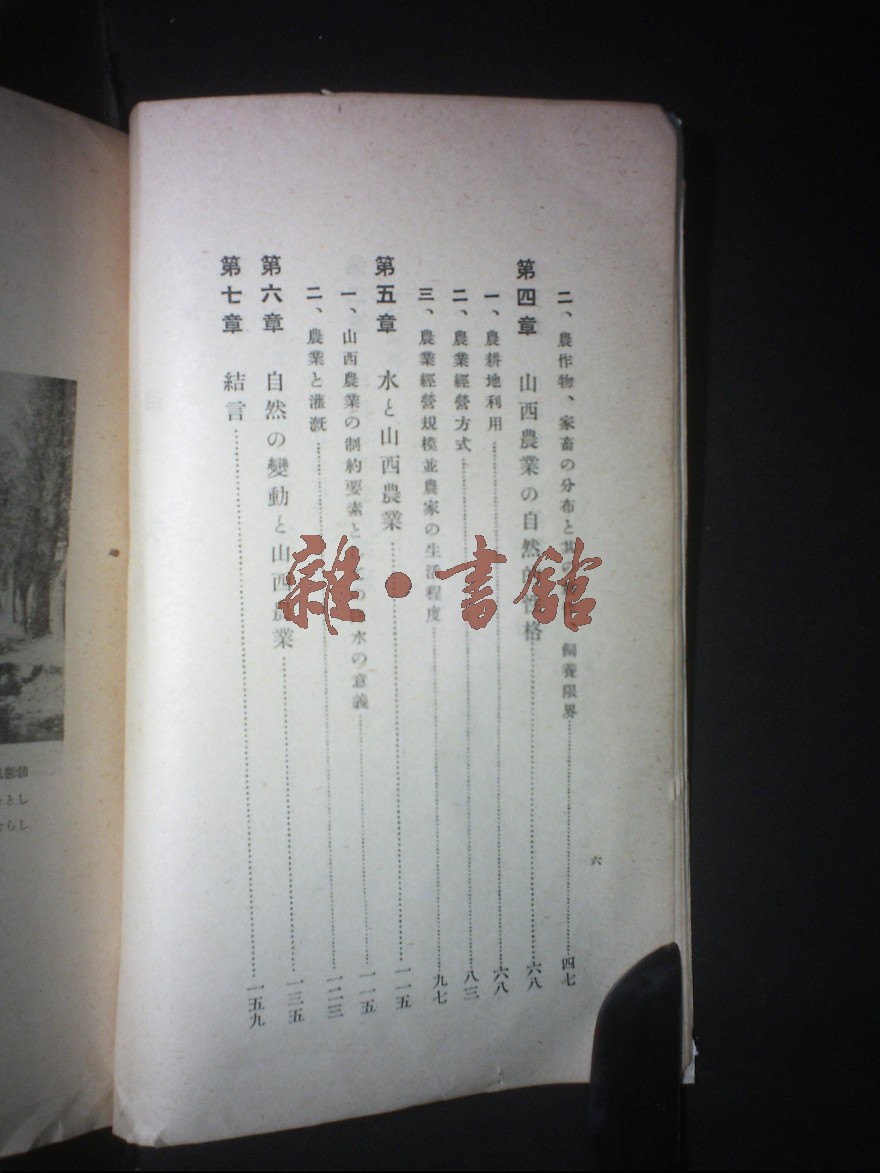 二、農作物、家畜の分布と其の 飼養限界……四七
第四章 山西農業の自然的性格……六八
一、農耕地利用……六八
二、農業經營方式……八三
三、農業經營規模並農家の生活程度……九七
第五章 水と山西農業……一一五
一、山西農業の制約要素と 水の意義……一一五
二、農業と灌漑……一二三
第六章 自然の變動と山西農業……一三五
第七章 結言……一五九
六
雜・書舘
とし
らし